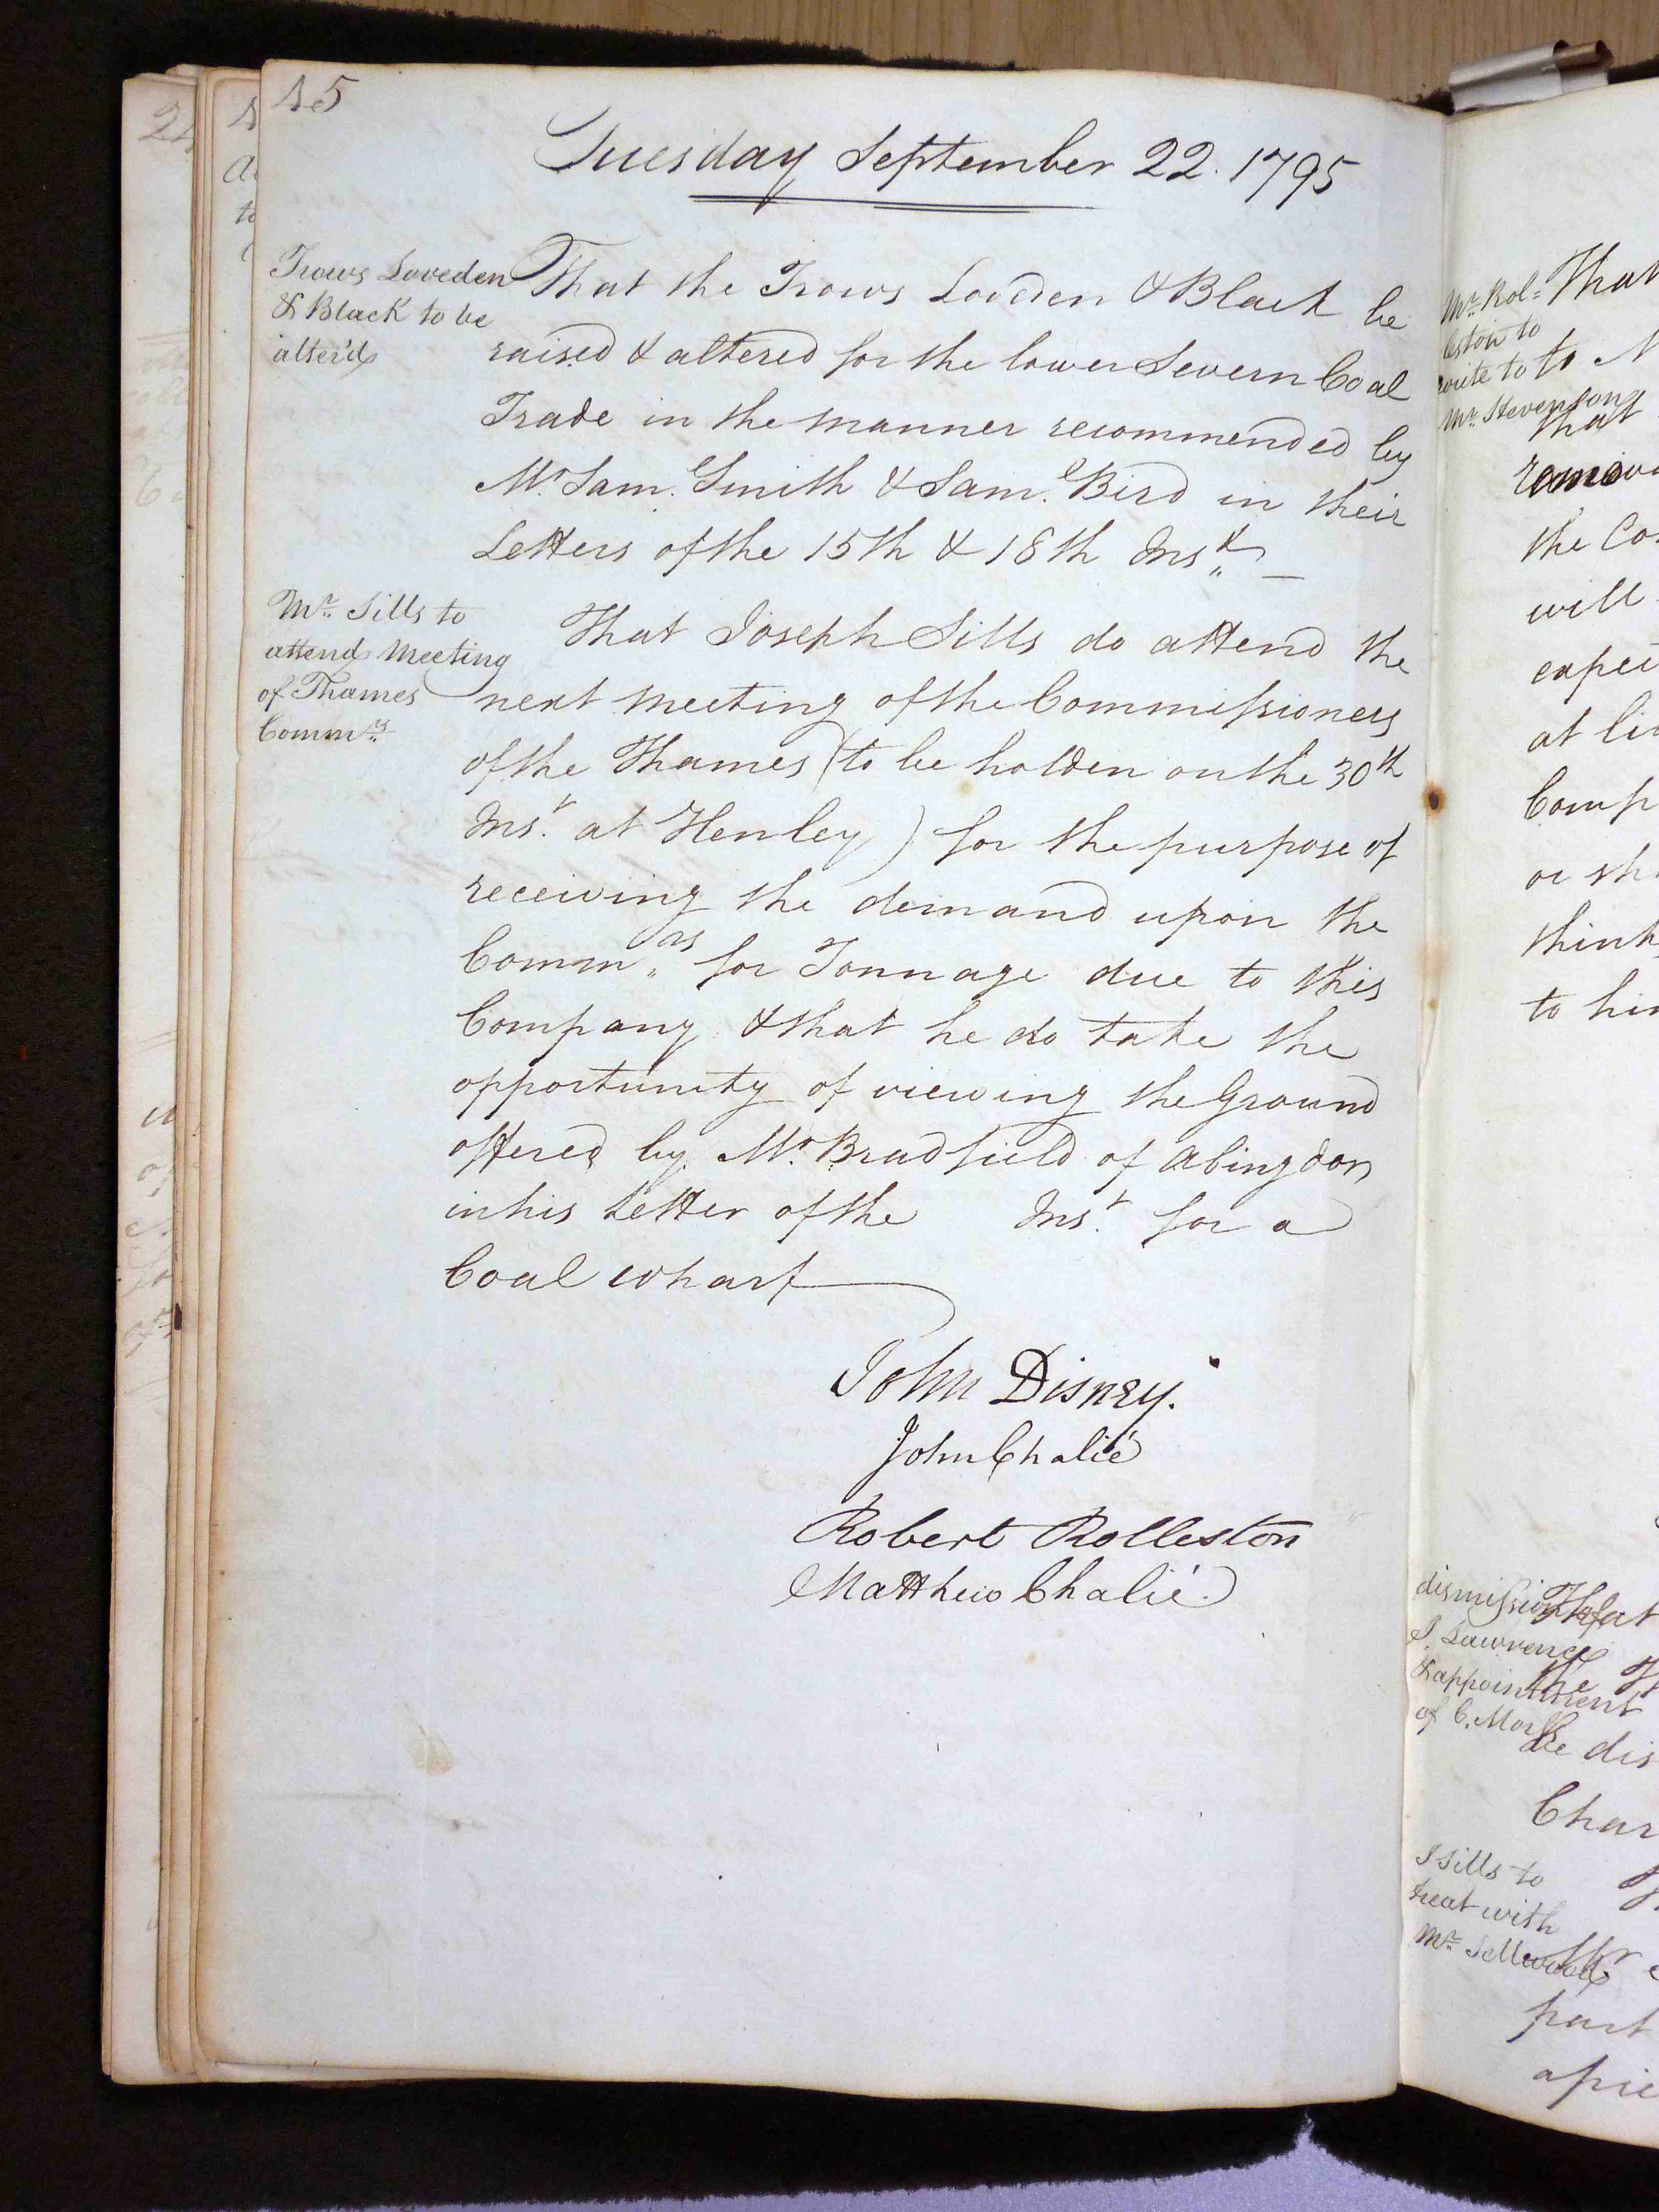 45
Tuesday September 22. 1795
Trows Loveden
& Black to be
alter'd
That the Trows Loveden & Black be
raised & altered for the lower Severn Coal
Trade in the manner recommended by
Mr. Saml. Smith & Saml. Bird in their
Letters of the 15th & 18th Inst.
Mr. Sills to
attend Meeting
of Thames
Commrs
That Joseph Sills do attend the
next meeting of the Commissioners
of the Thames (to be holden on the 30th
Inst. at Henley) for the purpose of
receiving the demand upon the
Commrs for Tonnage due to this
Company & that he do take the
opportunity of viewing the Ground
offered by Mr. Bradfield of Abingdon
in his Letter of the Inst. for a
Coal wharf
John Disney.
John Chalié
Robert Rolleston
Matthew Chalié.
Mr. Rol=
leston to
write to
Mr. Stevenson
That
to
that
the Co
will
expec
at li
Comp
or th
think
to him
dismission of
J. Lawrence
& appointment
of C. Mor
That
the
be dis
Char
J Sills to
treat with
Mr. Sellwood
Mr
part